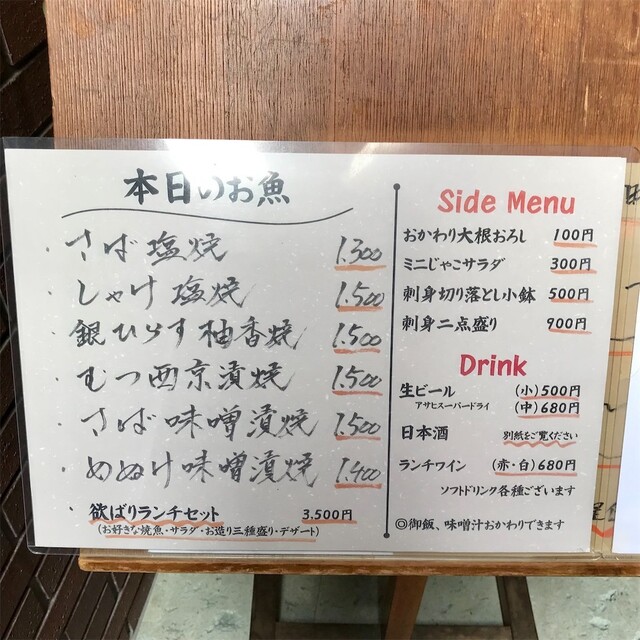 本日のお魚
・さば塩焼 1.300
・しゃけ塩焼 1.500
・銀ひらす柚香焼 1.500
・むつ西京漬焼 1.500
・さば味噌漬焼 1.500
・めぬけ味噌漬焼 1.400
・欲ばりランチセット 3.500円
(お好きな焼魚・サラダ・お造り三種盛り・デザート)
Side Menu
おかわり大根おろし 100円
ミニじゃこサラダ 300円
刺身切り落とし小鉢 500円
刺身二点盛り 900円
Drink
生ビール (小)500円
アサヒスーパードライ (中)680円
日本酒 別紙をご覧ください
ランチワイン (赤・白)680円
ソフトドリンク各種ございます
◎御飯、味噌汁おかわりできます